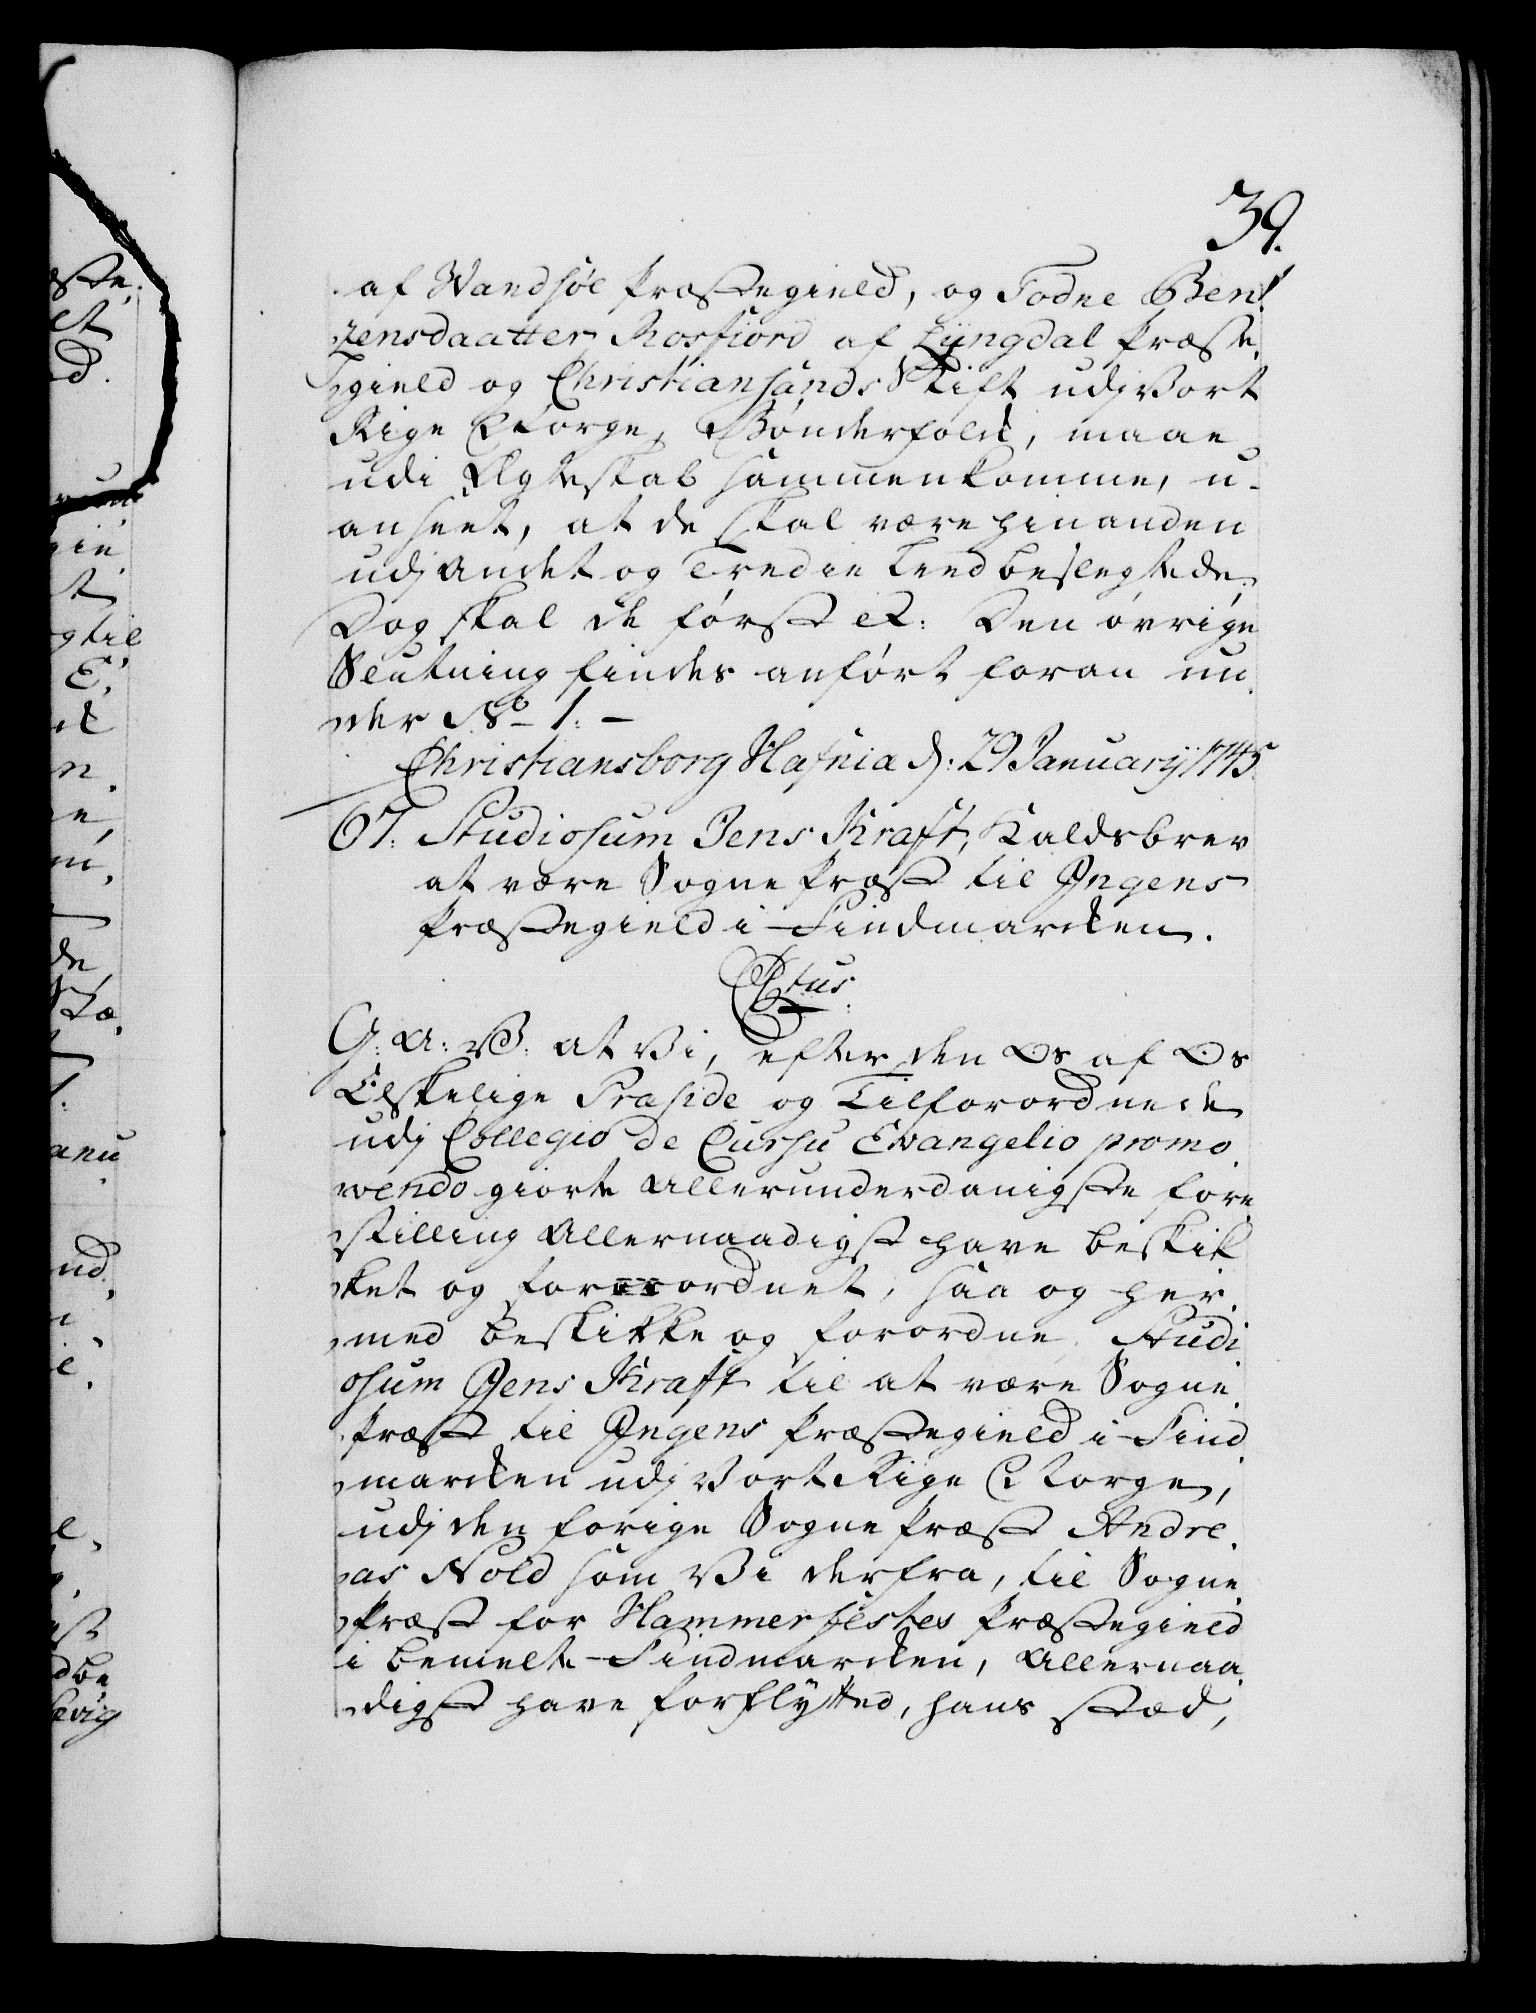 39.
af Wandsøe Præstegield, og Todne Ben-
zensdaatter Rosfiord af Lyngdal Præste-
gield og Christiansands Stift udj Vort
Rige Norge, Bønderfolck, maae
udi Ægteskab sammenkomme, u-
anseet, at de skal være hinanden
udj Andet og Tredie Leed beslegtede.
Dog skal de først etc: Den øvrige
Slutning findes anført foran un-
der No 1. –
Christiansborg Hafnia d: 29 January 1745.
67. Studiosum Jens Kraft, Kaldsbrev
at være Sogne Præst til Ingens
Præstegield i Findmarcken.
C6tus
G: A: V: at Vi, efter den Os af Os
Elskelige Præside og Tilforordnede
udj Collegio de Cursu Evangelio promo-
vendo giorte Allerunderdanigste fore-
stilling Allernaadigst have beskik-
ket og forordnet, saa og her-
med beskikke og forordne, Studi-
osum Jens Kraft til at være Sogne-
Præst til Ingens Præstegield i Find-
marcken udj Vort Rige Norge,
udj den forige Sogne Præst Andre-
as Nold som Vi derfra, til Sogne-
Præst for Hammerfestes Præstegield
i bemelte Findmarcken, Allernaa-
digst have forflytted, hans stæd,